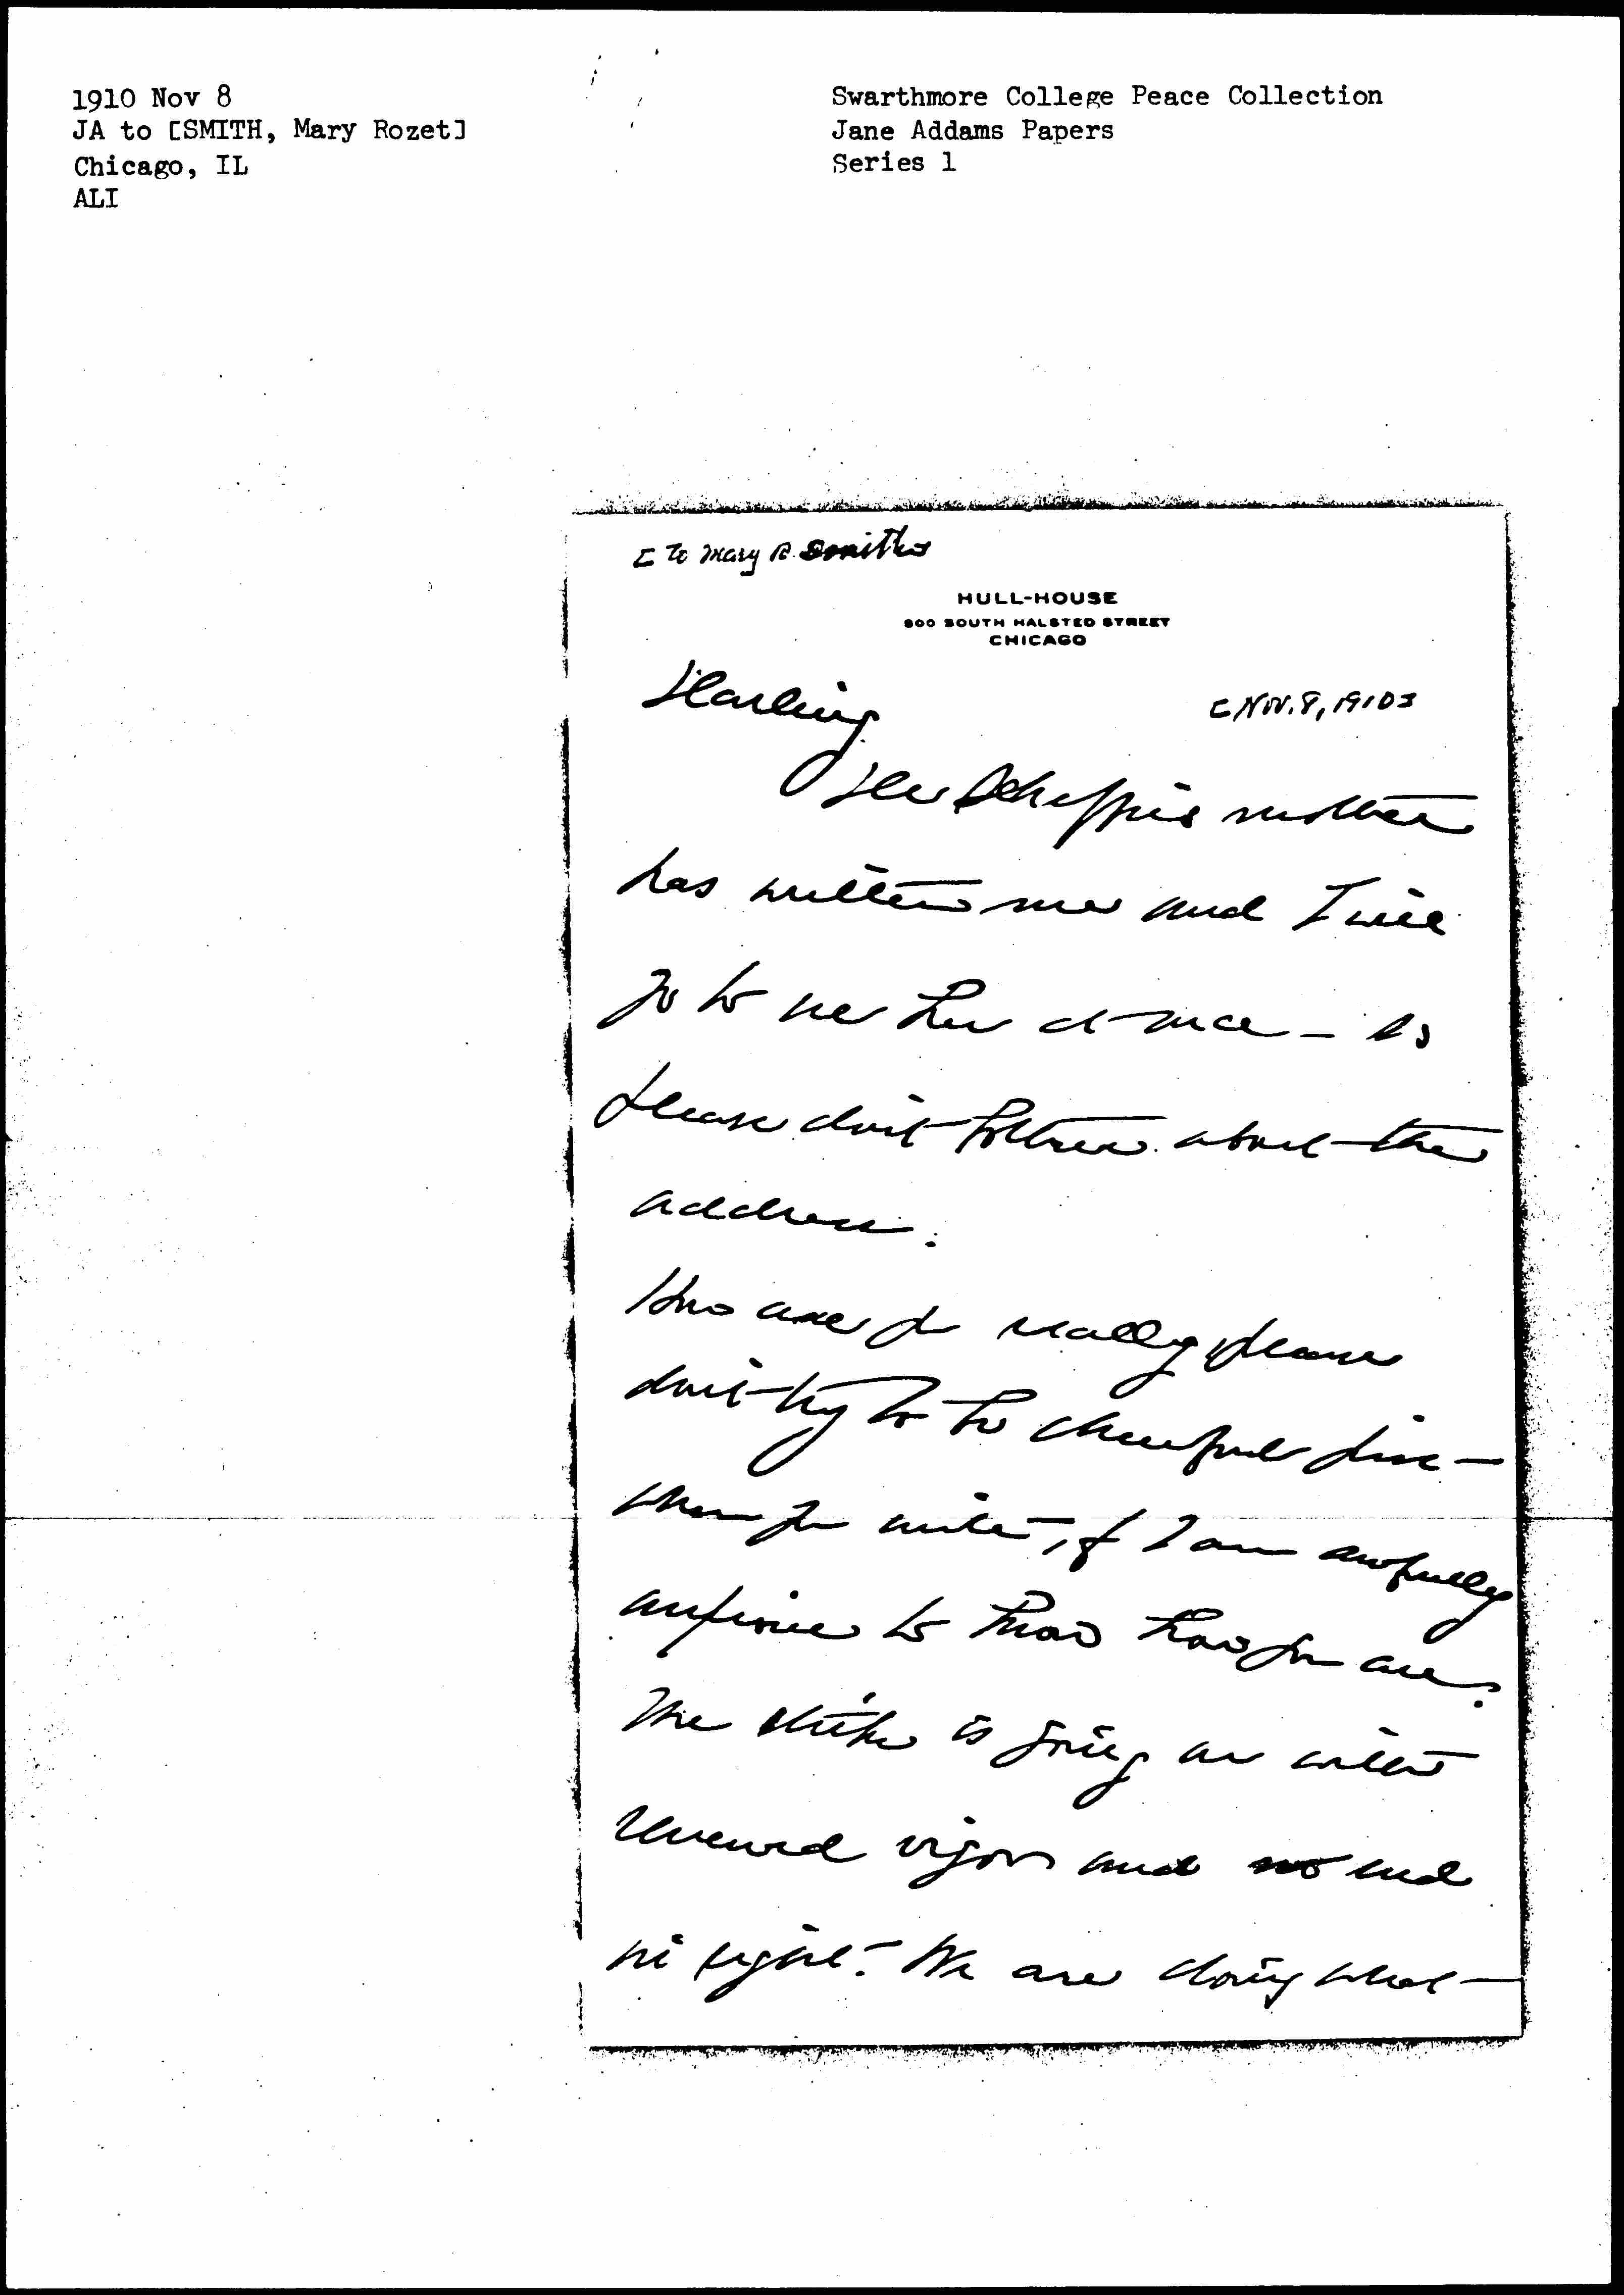 1910 Nov 8
JA to [SMITH, Mary Rozet]
Chicago, IL
ALI
Swarthmore College Peace Collection
Jane Addams Papers
Series 1
[to Mary R. Smith]
HULL-HOUSE
800 SOUTH HALSTED STREET
CHICAGO
Darling
[Nov. 8, 1910]
mother
has written me and I will
go to see her at once — so
please don't bother about the
address.
How are you really please
don't try to be cheerful
when you write, & I am awfully
anxious to know how you are.
The strike is going on with
renewed vigor and no end
in sight. We are doing what